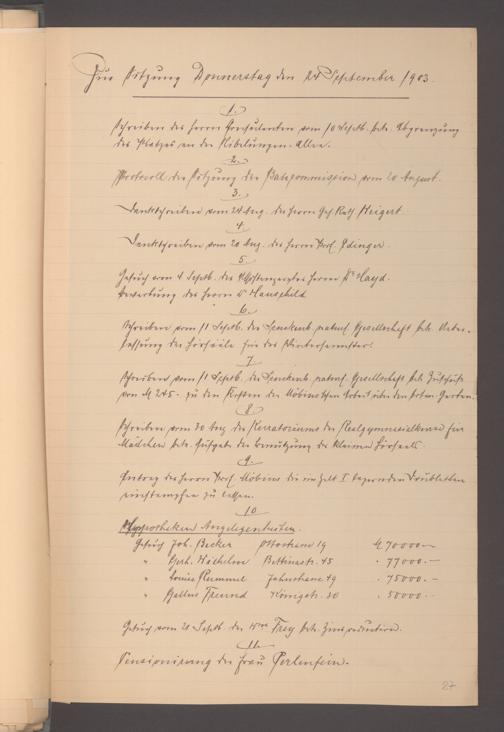 Zur Sitzung Donnerstag den 24 September 1903.
1.
Schreiben des Herrn Consulenten vom 10 Septb. betr. Abgrenzung
des Platzes an der Nibelungen-Allee.
2.
Protocoll der Sitzung der Baucommission vom 20 August.
3.
Dankschreiben vom 24 Aug. des Herrn Geh Rath Weigert
4.
Dankschreiben vom 20 Aug. des Herrn Prof. Edinger.
5.
Gesuch vom 4 Septb. des Herrn Dr Hayd.
Bewerbung des Herrn Dr Hauschild
6.
Schreiben vom 11 Septb. der Senckenb. naturf. Gesellschaft betr. Ueber-
lassung der Hörsäle für das Wintersemester.
7.
Schreiben vom 11 Septb. der Senckenb. naturf. Gesellschaft betr. Zuschuß
von M 245.- zu den Kosten der Möbius'schen Arbeit über den botan. Garten.
8.
Schreiben vom 30 Aug. des Curatoriums des Realgymnasialkurses für
Mädchen betr. Aufgabe der Benutzung des kleinen Hörsaals.
9.
Antrag des Herrn Prof. Möbius die im Zelt I liegenden Doubletten
einstampfen zu lassen.
10
Hypotheken Angelegenheiten.
Gesuch Joh. Becker Ottostrasse 19 M 70000.-
" Gerh. Wilhelm Bettinastr. 45 " 77000.-
" Louis Rummel Jahnstrasse 49 " 75000.-
" Gallus Freund Königstr. 30 " 50000.-
Gesuch vom 21 Septb. der Wwe Frey betr. Zinsreduction.
11.
Pensionirung der Frau Perlenfein.
27